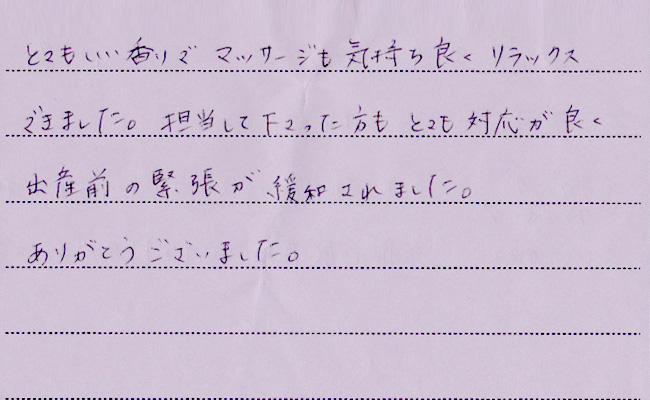 とてもいい香りで マッサージも気持ち良く リラックス
できました。担当して下さった方も とても対応が良く
出産前の緊張が、緩和されました。
ありがとうございました。